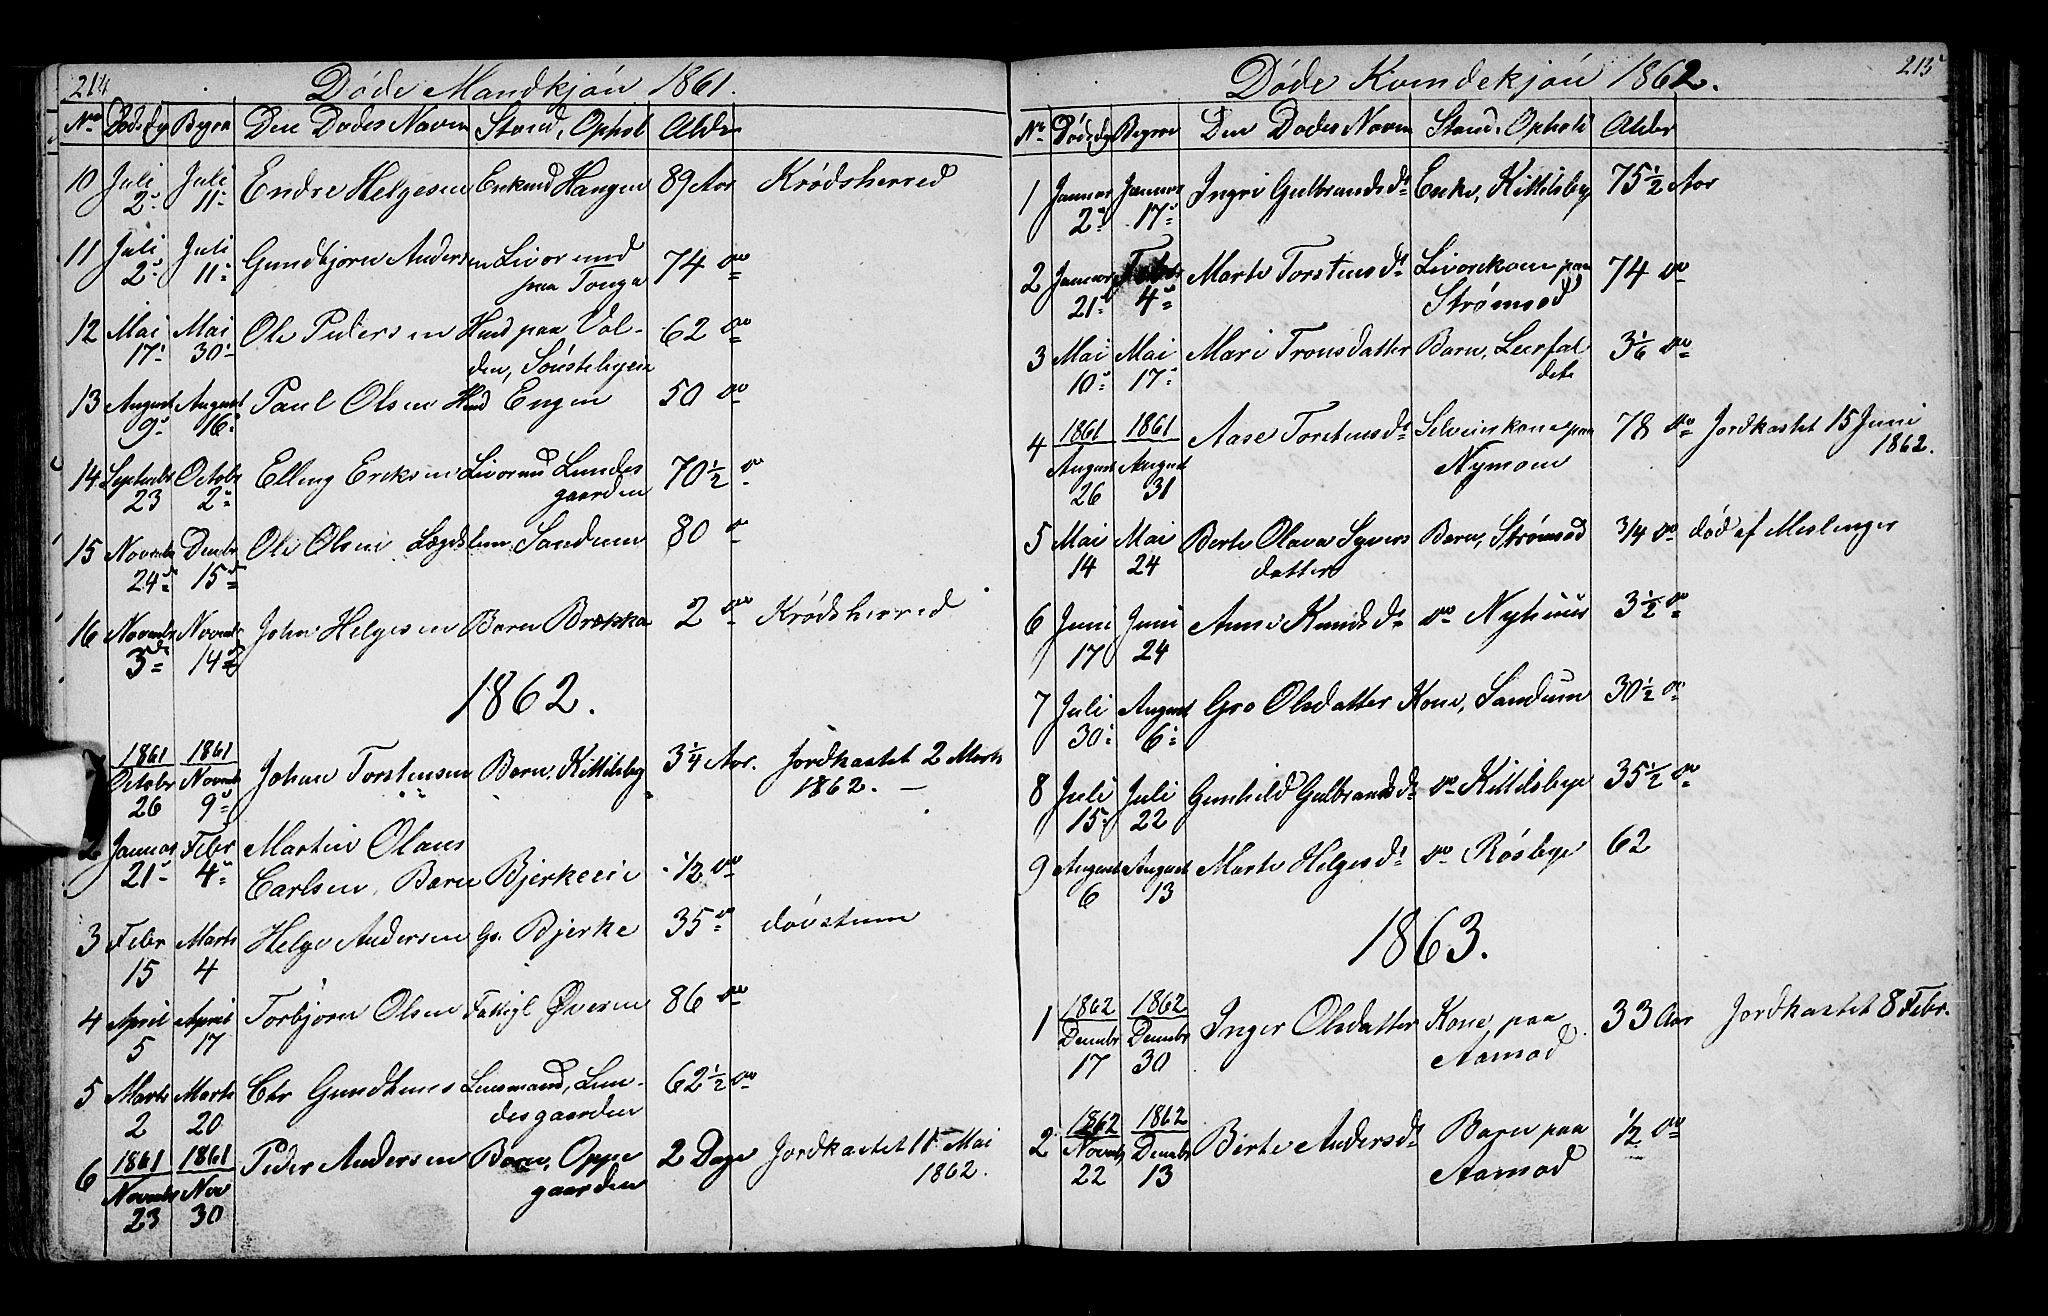 214
Døde Mandkjøn 1861.
No Dødsdg Begra Den Dødes Navn Stand, Ophol Alder
10 Juli 2 Juli 11 Endre Helgesen Enkemd Haugen 89 Aar Krødsherred
11 Juli 2 Juli 11 Gundbjørn Andersen Livørmnd
paa Tonga 74 do
12 Mai 17 Mai 30 Ole Pedersen Hmd paa Val-
den, Sønstebyeie 62 do
13 August 9 August 16 Paul Olsen Hmd Engen 50 do
14 Septembr 23 Octobr 2 Elling Eriksen Livørmd Lundes
gaarden 70 1/2 do
15 Novembr 24 Decembr 15 Ole Olsen Lægdslem Sandum 80 do
16 Novembr 3 Novembr 14 John Helgesen Barn Brækka 2 do Krødsherred
1862.
1861 1861
October 26 Novembr 9 Johan Torstensen Barn, Kittilsby 3 1/4 Aar. Jordkastet 2 Marts
1862. –
2 Januar 21 Febr 4 Martin Olaus
Carlsen, Barn Bjerkeeie 1/2 do
3 Febr 15 Marts 4 Helge Andersen Gs. Bjerke 35 do døvstum
4 April 5 April 17 Torbjørn Olsen Fattigl Øveren 86 do
5 Marts 2 Marts 20 Chr Gundhus Lensmand, Lun-
desgaarden 62 1/2 do
6 1861 1861
Novembr 23 Nov 30 Peder Andersen Barn, Oppe
gaarden 2 Dage Jordkastet 11 Mai
1862.
215
Døde Kvindekjøn 1862.
Nr. Dødsdg Begrav Den Dødes Navn Stand, Ophold Alder
1 Januar 2 Januar 17 Ingri Gulbrandsdr Enke, Kittilsbye 75 1/2 Aar
2 Januar 21 Febr 4 Marte Torstensdr Livørekone paa
Strømsød 74 do
3 Mai 10 Mai 17 Mari Tronsdatter Barn, Leerfal
det 3 1/6 do
4 1861 1861
August 26 August 31 Aase Torstensdr Selveierkone paa
Nymoen 78 do Jordkastet 15 Juni
1862.
5 Mai 14 Mai 24 Berte Olava Syvers
datter Barn, Strømsød 3/4 do død af Meslinger
6 Juni 17 Juni 24 Anne Knudsdr do Nyhuus 3 1/2 do
7 Juli 30 August 6 Gro Olsdatter Kone, Sandum 30 1/2 do
8 Juli 15 Juli 22 Gunhild Gulbrandsdr do Kittilsbye 35 1/2 do
9 August 6 August 13 Marte Helgesdr do Røsbye 62
1863.
1 1862 1862
Decembr 17 Decembr 30 Inger Olsdatter Kone, paa
Aamod 33 Aar Jordkastet 8 Febr.
2 1862 1862
Novembr 22 Decembr 13 Birte Andersdr Barn paa
Aamod 1/2 do